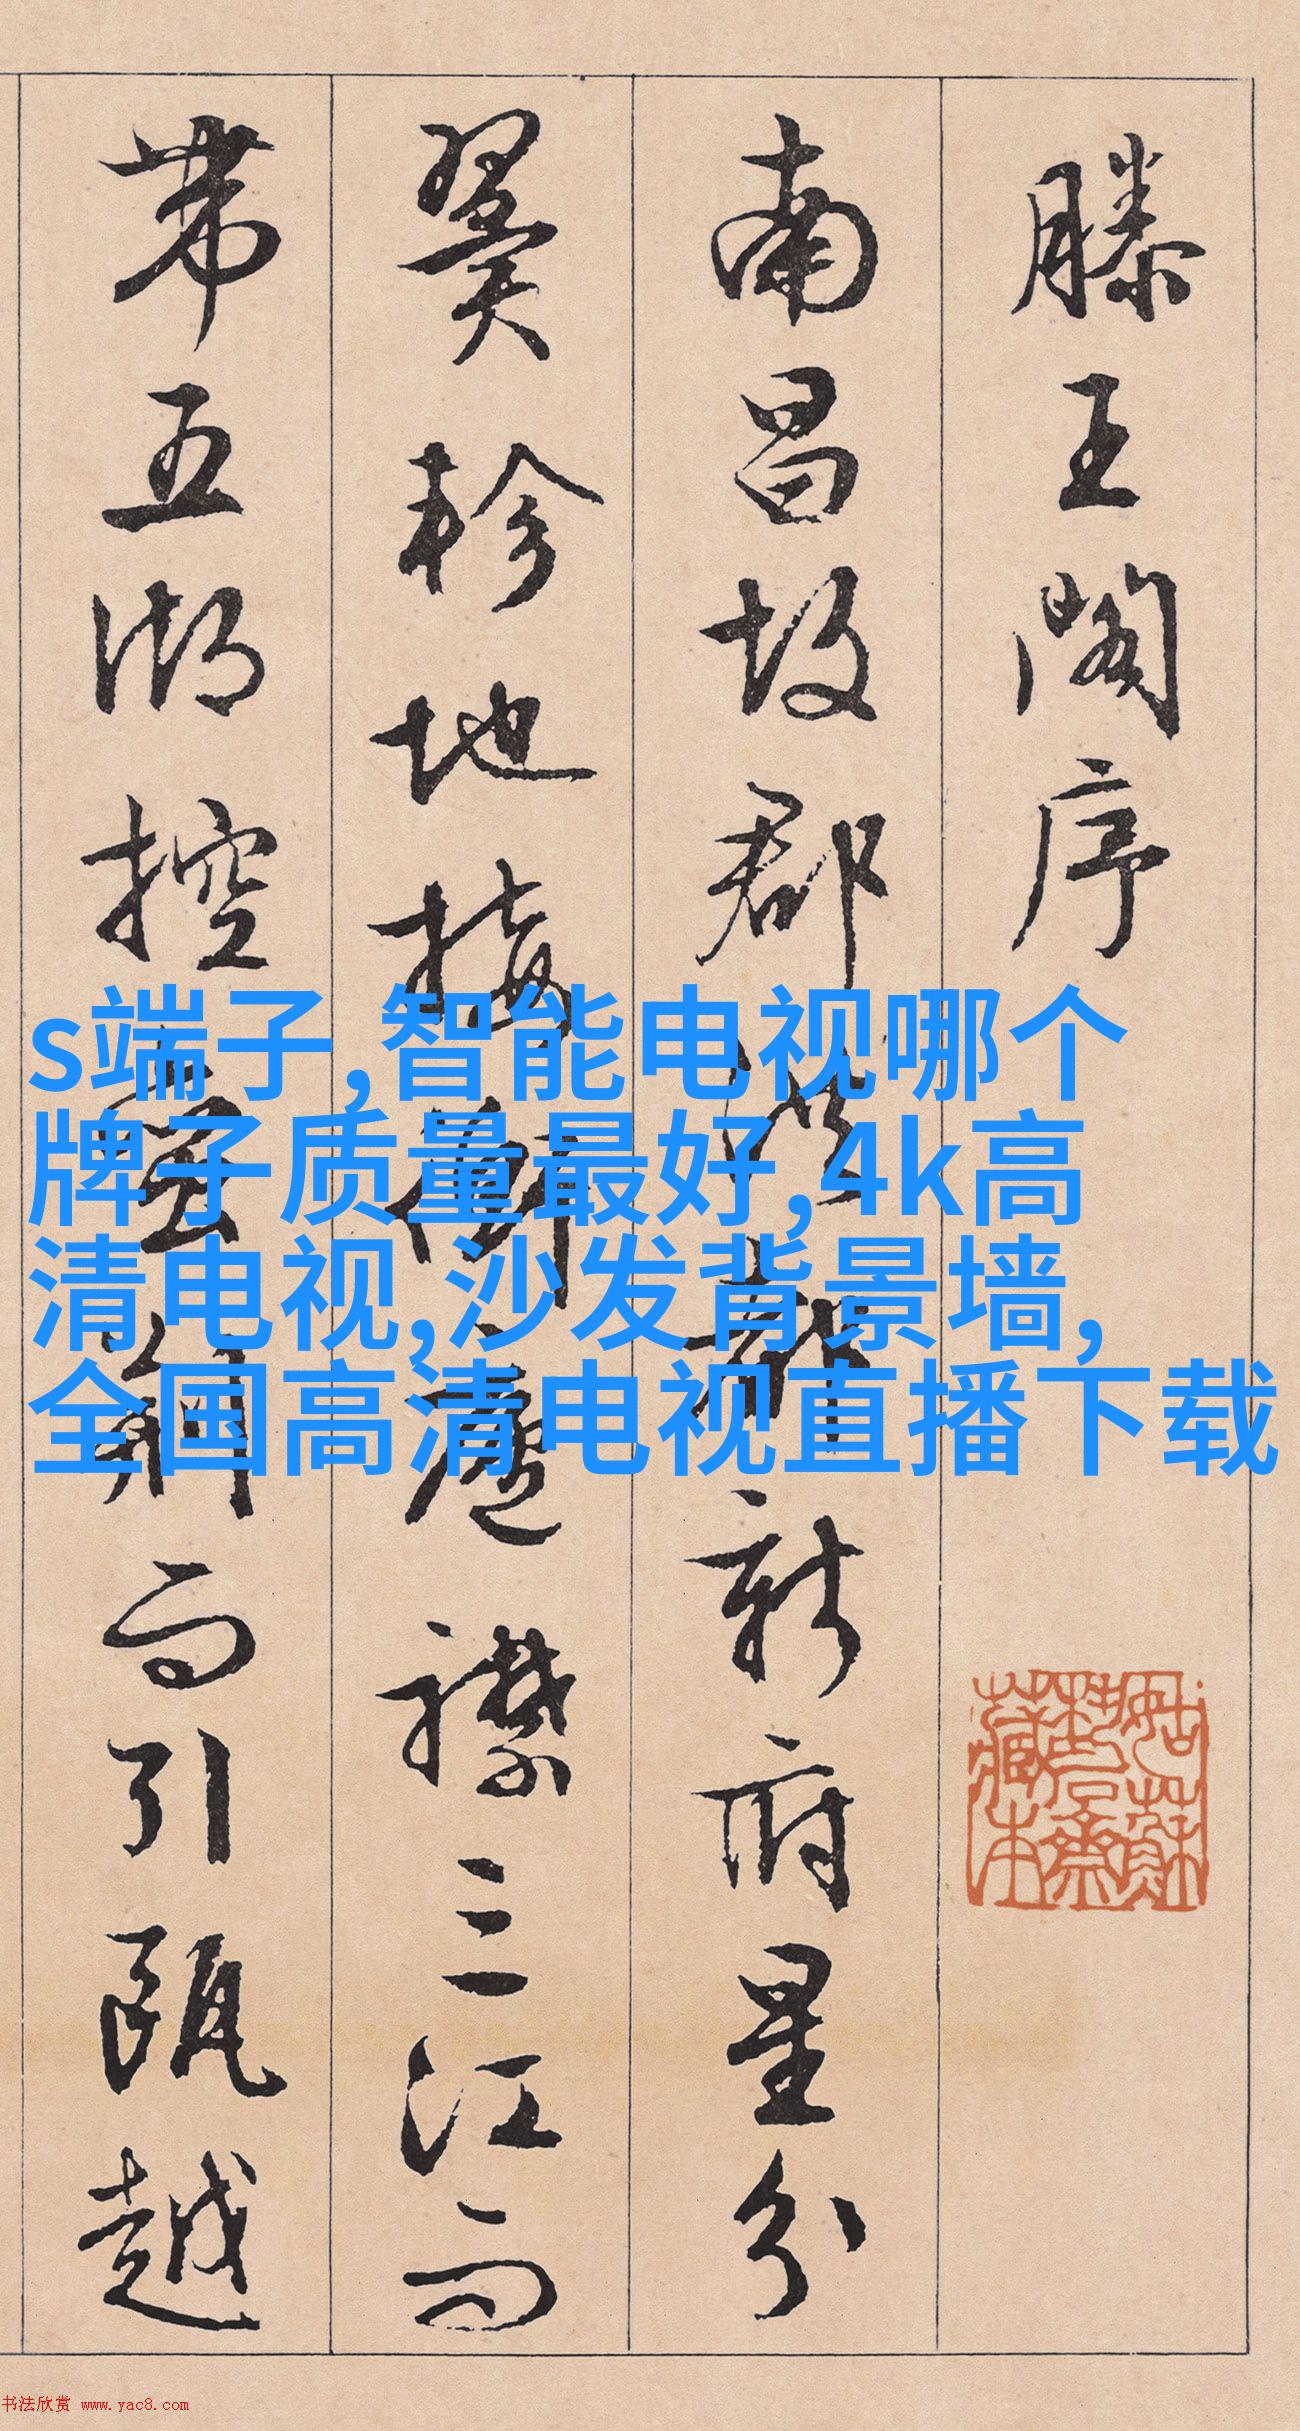 滕王閣序
南昌故郡洪都新府星分
翼軫地接衡廬襟三江而
帶五湖控蠻荊而引甌越
s端子,智能电视哪个
牌子质量最好,4k高
清电视,沙发背景墙,
全国高清电视直播下载
书法欣赏 www.yac8.com